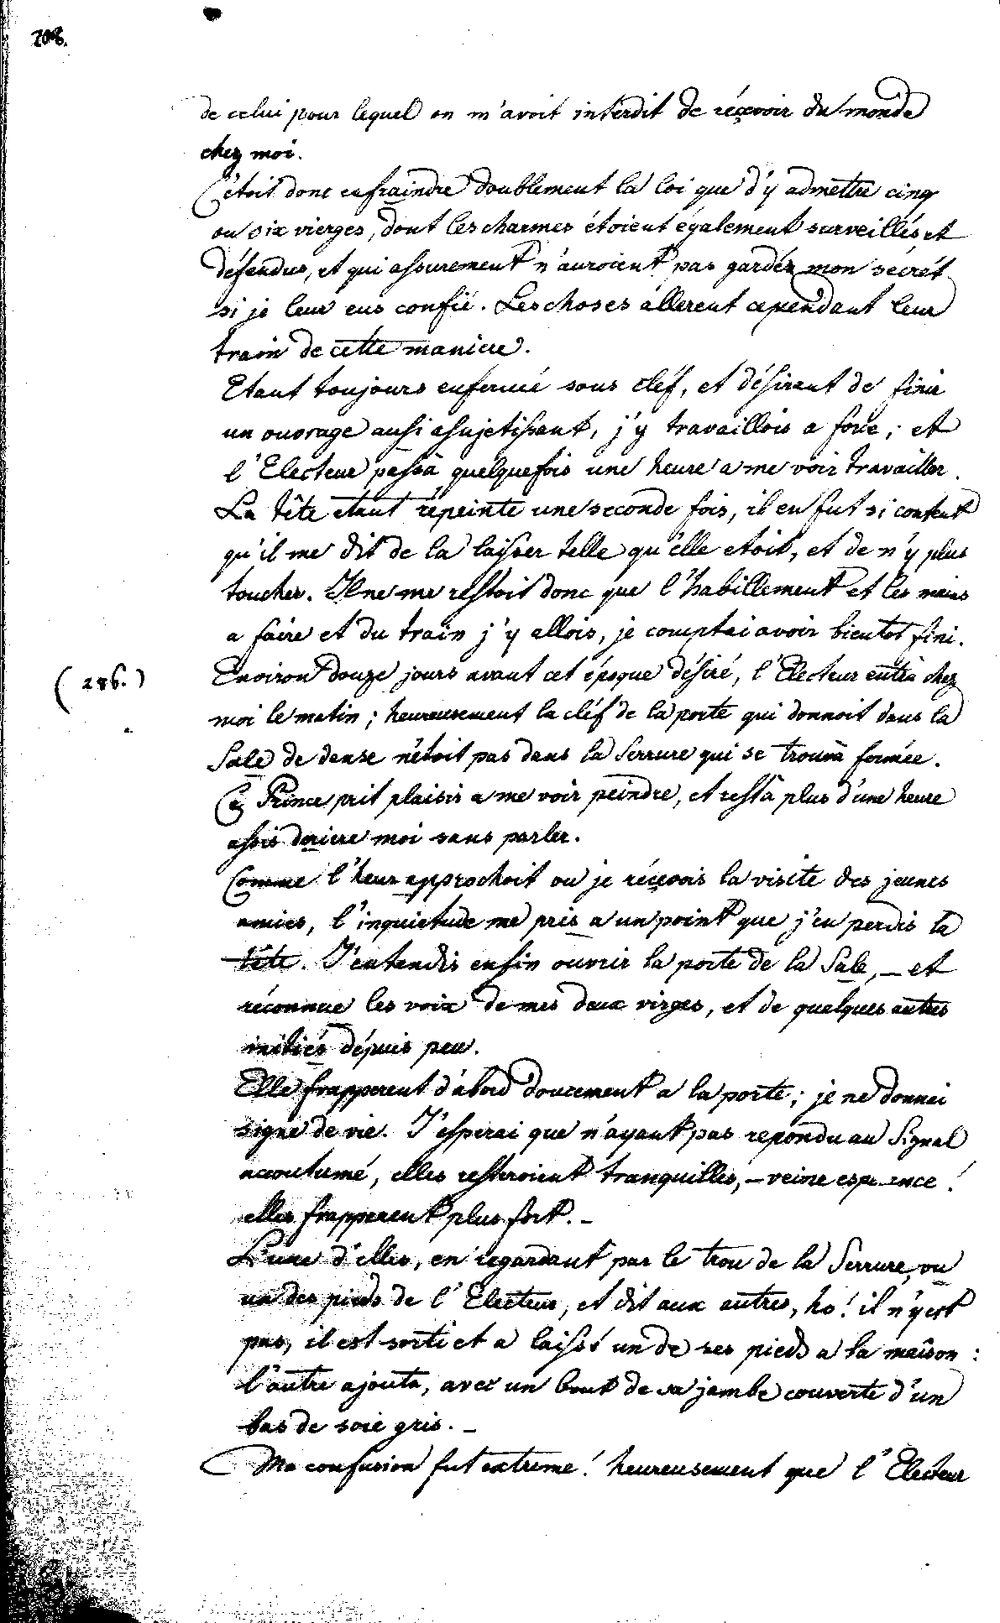 208.
de celui pour lequel on m'avoit interdit de réçevoir du monde
chez moi.
C'étoit donc enfraindre doublement la loi que d'y admettre cinq
ou six vierges, dont les charmes étoient également surveillés et
défendus, et qui assurement n'auroient pas gardéz mon sécrét
si je leur eus confié. Les choses allerent cependant leur
train de cette maniere.
Etant toujours enfermé sous cléf, et désirant de finir
un ouvrage aussi asujetissant, j'y travaillois a force; et
l'Electeur passà quelquefois une heure a me voir travailler.
La tête etant répeinte une seconde fois, il en fut si content
qu'il me dit de la laisser telle qu'elle etoit, et de n'y plus
toucher. Il ne me restoit donc que l'habillement et les mains
a faire et du train j'y allois, je comptai avoir bientot fini.
(286.)
Environ douze jours avant cet époque désiré, l'Electeur entra chez
moi le matin; heureusement la cléf de la porte qui donnoit dans la
Sale de danse n'étoit pas dans la Serrure qui se trouvà formée.
Ce Prince prit plaisir a me voir peindre, et restà plus d'une heure
assis deriere moi sans parler.
Comme l'heur approchoit ou je réçevois la visite des jeunes
amies, l'inquietude me pris a un point que j'en perdis la
tête. J'entendis enfin ouvrir la porte de la Sale, _ et
réconnue les voix de mes deux virges, et de quelques autres
initiés dépuis peu.
Elle frapperent d'abord doucement a la porte; je ne donnai
signe de vie. J'esperai que n'ayant pas repondu au Signal
accoutumé, elles resteroient tranquilles, _ veine espe ence!
elles frapperent plus fort. _
L'une d'elles, en regardant par le trou de la Serrure, vu
un des pieds de l'Electeur, et dit aux autres, ho! il n'y est
pas, il est sorti et a laissé un de ses pieds a la maison:
l'autre ajouta, avec un bout de sa jambe couverte d'un
bas de soie gris. _
Ma confusion fut extreme! heureusement que l'Electeur